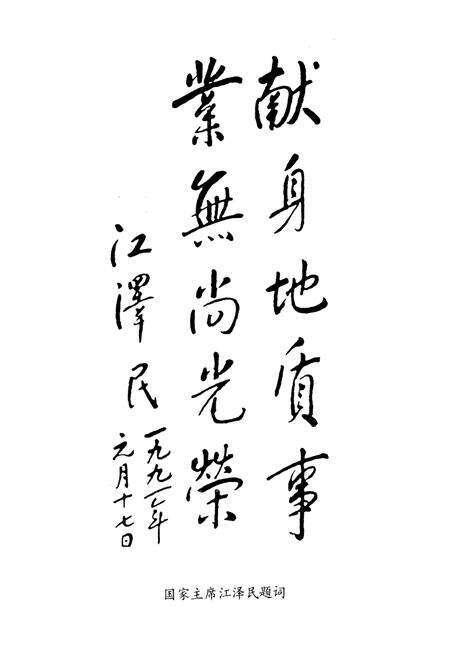 献身地质事
業無尚光榮
江澤民
一九九年
元月十七日
国家主席江泽民题词